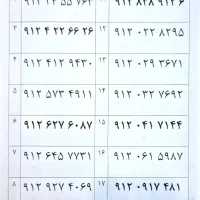 ۹۱۲ ۸۲۸ ۹۱۲ ۶
۳ ۹۱۲ ۴ ۲۲ ۶۶ ۲۶ ۱۲ ۹۱۲ ۰۲۲ ۸۲۹۵
۴ ۹۱۲ ۴۱۲ ۹۴۳۰ ۹۱۲ ۰۲۹ ۳۶۷۱
۵ ۹۱۲ ۵۷۳ ۴۹۱۱ ۱۴ ۹۱۲ ۰۳۲ ۷۶۹۲
۶ ۹۱۲ ۶۲۷ ۶۰۸۷ ۱۵ ۹۱۲ ۰۴۱ ۷۱۴۴
۷ ۹۱۲ ۶۴۵ ۷۷۳۱ ۱۶ ۹۱۲ ۰۶۱ ۵۹۸۷
۸ ۹۱۲ ۹۲۷ ۴۰۶۹ ۱۷ ۹۱۲ ۰۹۱۷ ۴۸۱